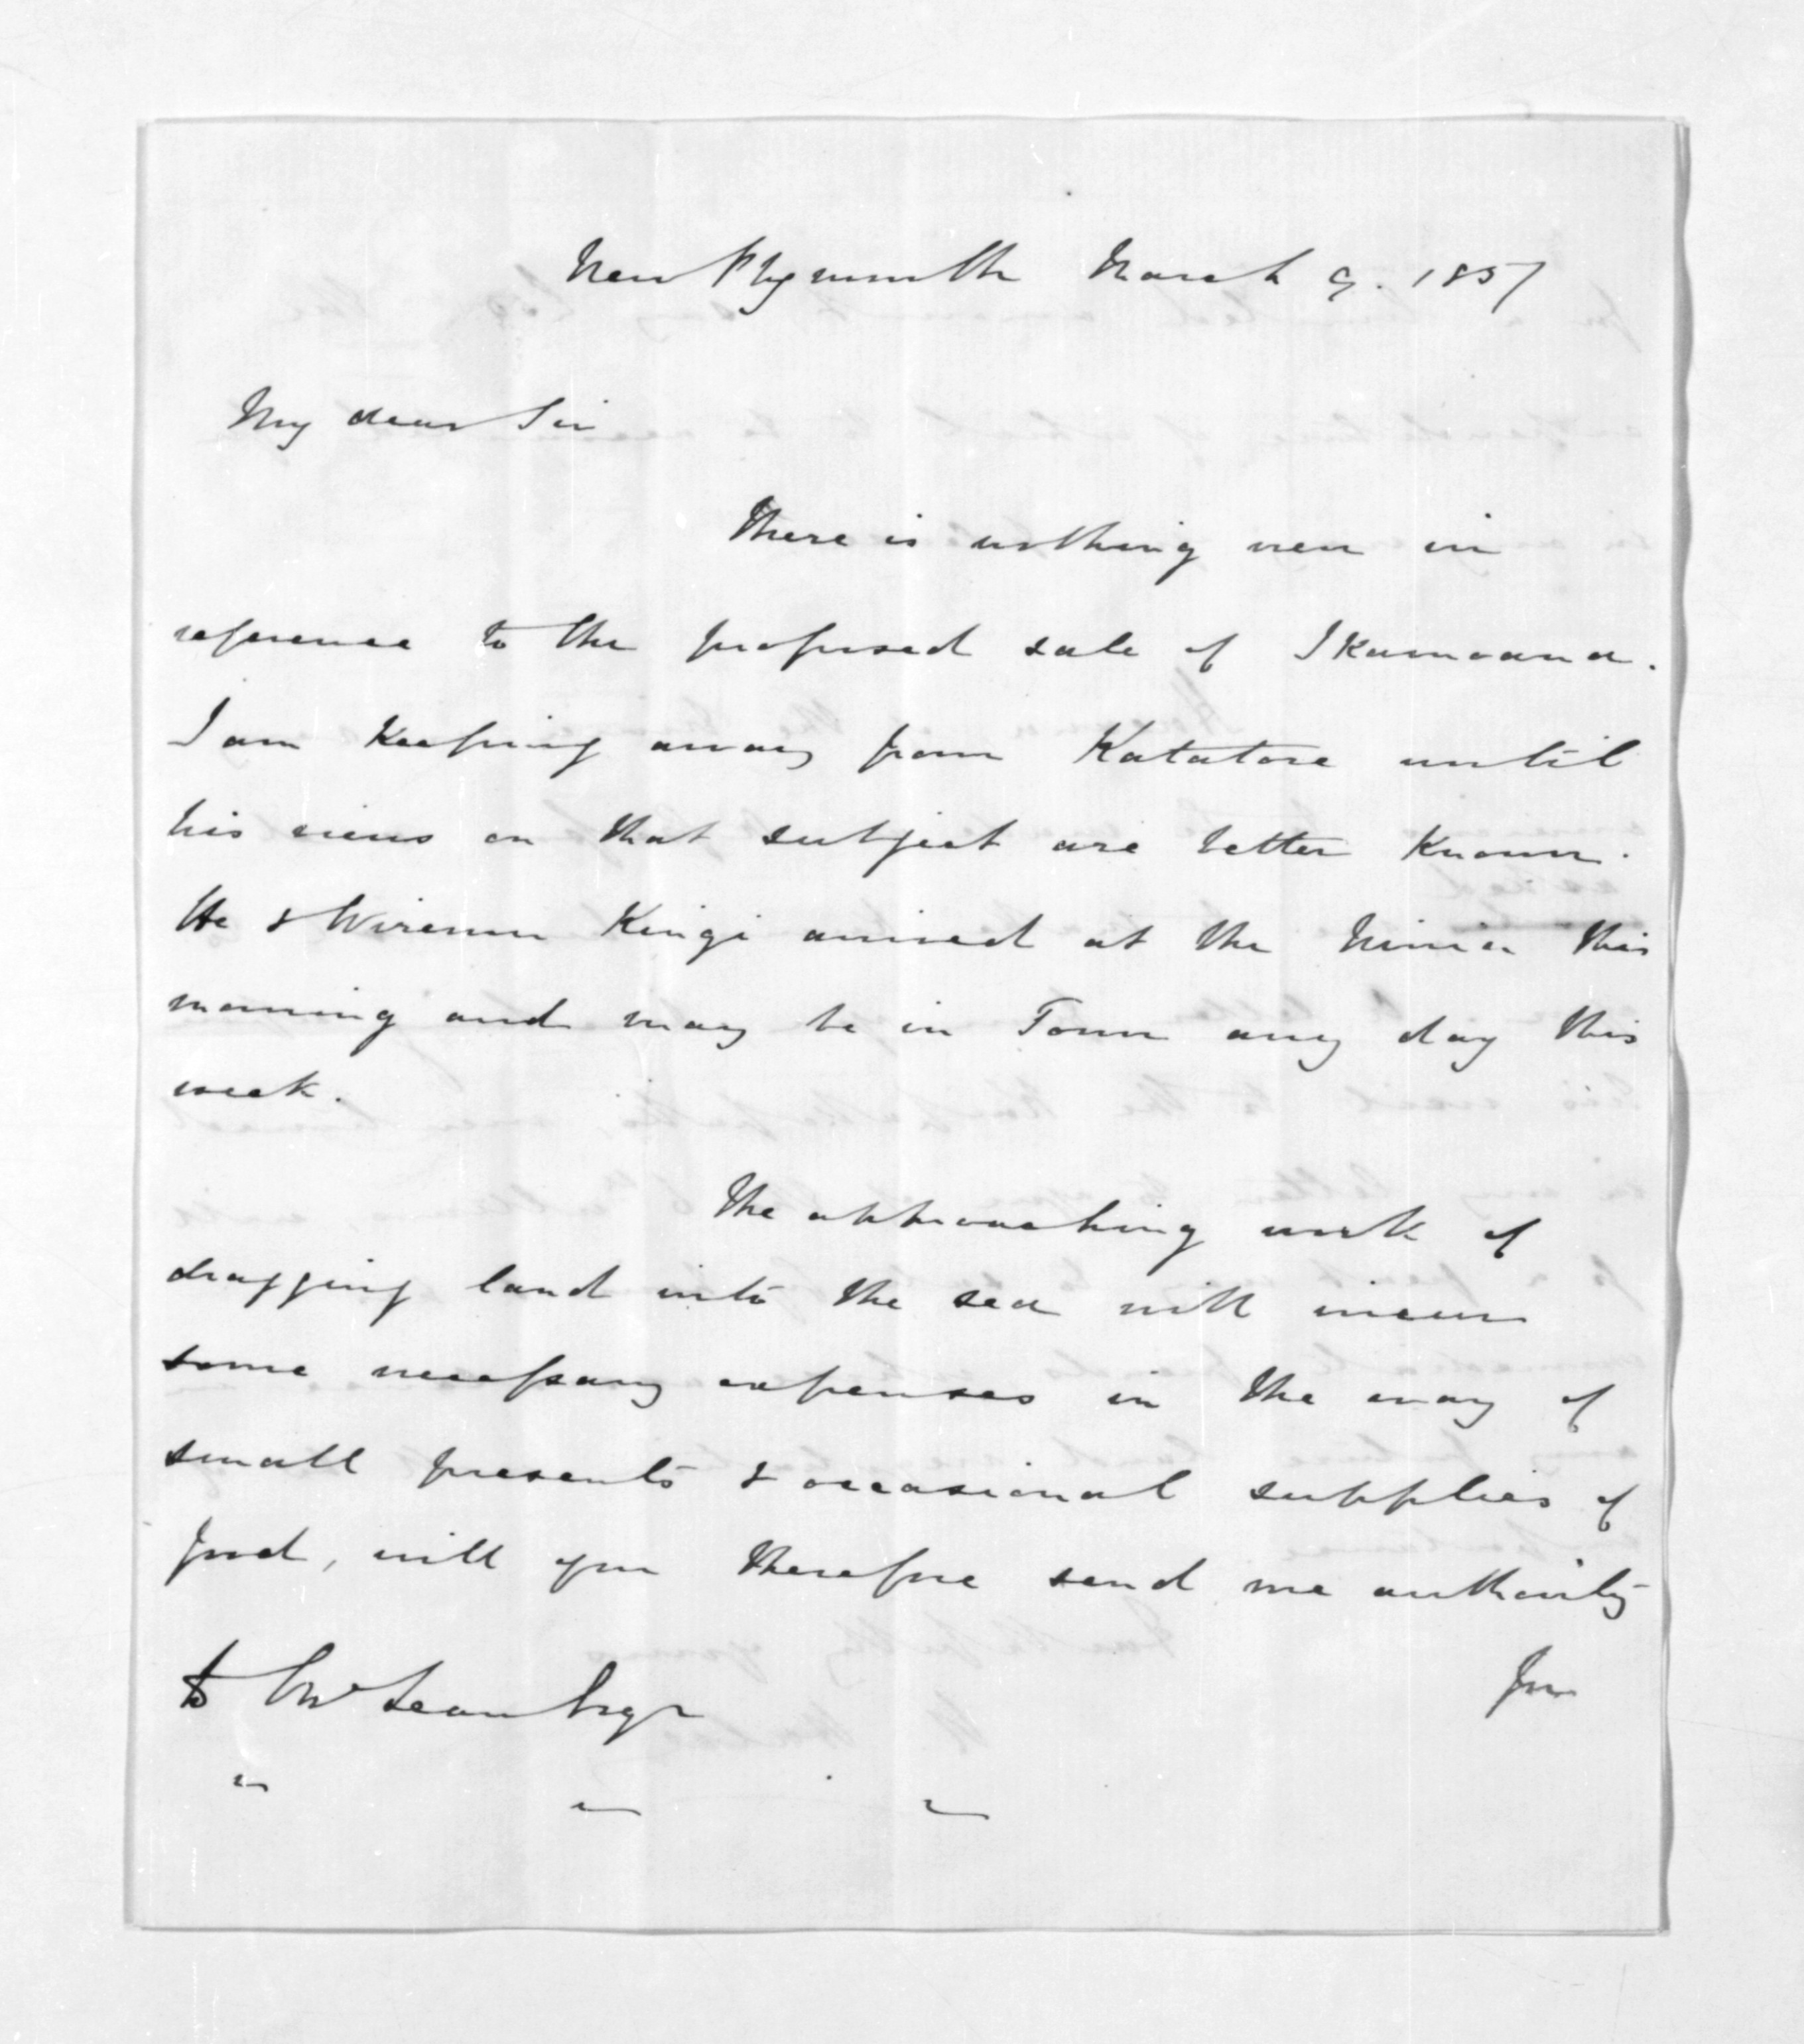 New Plymouth March 9. 1857
My dear Sir
There is nothing new in
reference to the proposed sale of Ikamoana.
I am keeping away from Katatore until
his views on that subject are better known.
He & Wiremu Kingi arrived at the this
morning and may be in Town any day this
week.
The approaching work of
dragging land into the sea will incur
some necessary expenses in the way of
small presents & occasional supplies of
food, will you therefore send me authority
for
to McLean Esqr
" " "